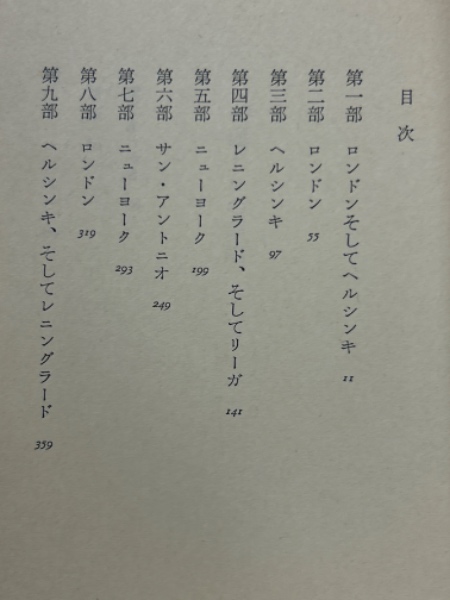 目次
第一部 ロンドンそしてヘルシンキ 11
第二部 ロンドン 55
第三部 ヘルシンキ 97
第四部 レニングラード、そしてリーガ 141
第五部 ニューヨーク 199
第六部 サン・アントニオ 249
第七部 ニューヨーク 293
第八部 ロンドン 319
第九部 ヘルシンキ、そしてレニングラード 359